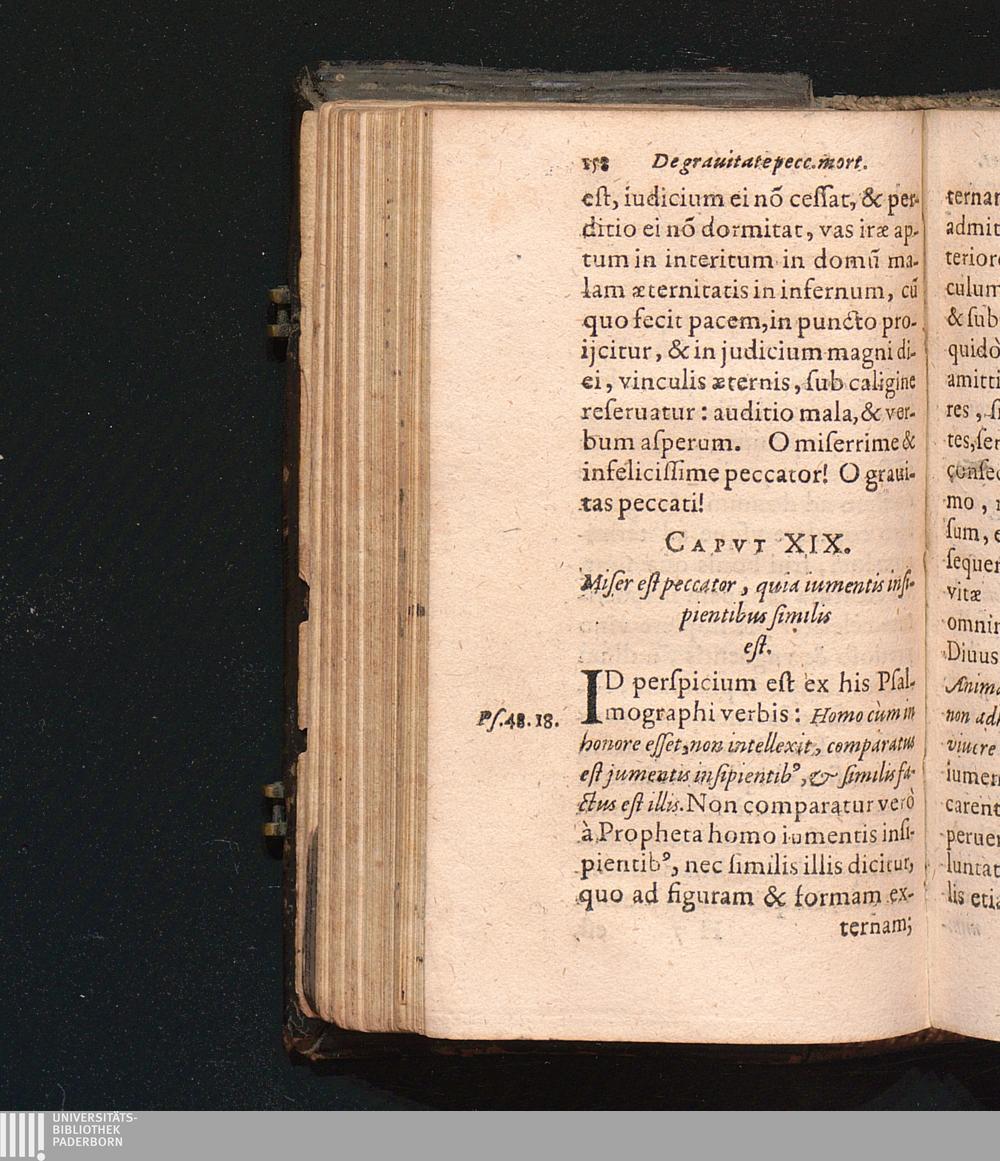 158 De grauitate pecc. mort.
eſt, iudicium ei nõ ceſſat, & per-
ditio ei nõ dormitat, vas iræ ap-
tum in interitum in domũ ma-
lam æternitatis in infernum, cũ
quo fecit pacem, in puncto pro-
ijcitur, & in judicium magni di-
ei, vinculis æternis, ſub caligine
reſeruatur: auditio mala, & ver-
bum aſperum. O miſerrime &
infeliciſſime peccator! O graui-
tas peccati!
CAPVT XIX.
Miſer eſt peccator, quia iumentis inſi-
pientibus ſimilis
eſt.
ID perſpicium eſt ex his Pſal-
mographi verbis: Homo cùm in
Pſ. 48. 18.
honore eſſet, non intellexit, comparatus
eſt jumentis inſipientibꝰ, & ſimilis fa-
ctus eſt illis. Non comparatur verò
à Propheta homo iumentis inſi-
pientibꝰ, nec ſimilis illis dicitur,
quo ad figuram & formam ex-
ternam;
ternar
admit
teriore
culum
& ſub
quidò
amitti
res, ſi
tes, ſer
conſec
mo,
ſum, e
ſequer
vitæ
omnin
Diuus
Anima
non adh
viuere
iumer
carent
peruer
luntat
lis etia
UNIVERSITÄTS-
BIBLIOTHEK
PADERBORN